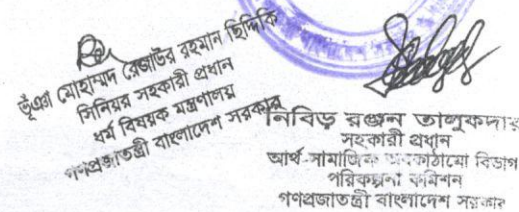 ভূঁঞা মোহাম্মদ রেজাউর রহমান ছিদ্দিকি
সিনিয়র সহকারী প্রধান
ধর্ম বিষয়ক মন্ত্রণালয়
গণপ্রজাতন্ত্রী বাংলাদেশ সরকার
নিবিড় রঞ্জন তালুকদার
সহকারী প্রধান
আর্থ-সামাজিক অবকাঠামো বিভাগ
পরিকল্পনা কমিশন
গণপ্রজাতন্ত্রী বাংলাদেশ সরকার